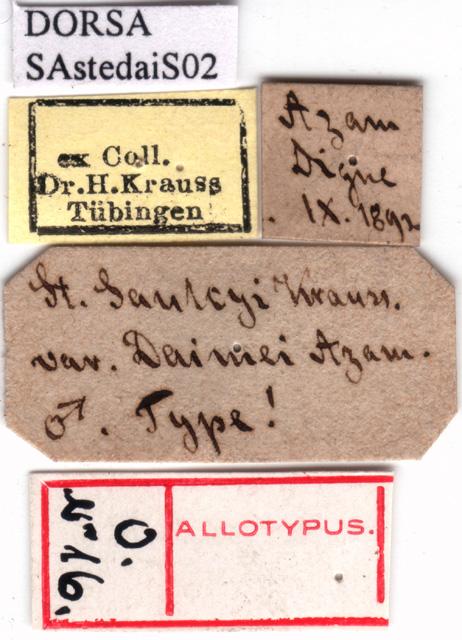 DORSA
SAstedaiS02
ex Coll.
Dr.H.Krauss
Tübingen
Azam
Digne
IX. 1892
St. Saulcyi Krauss.
var. Daimei Azam.
♂. Type!
ALLOTYPUS.